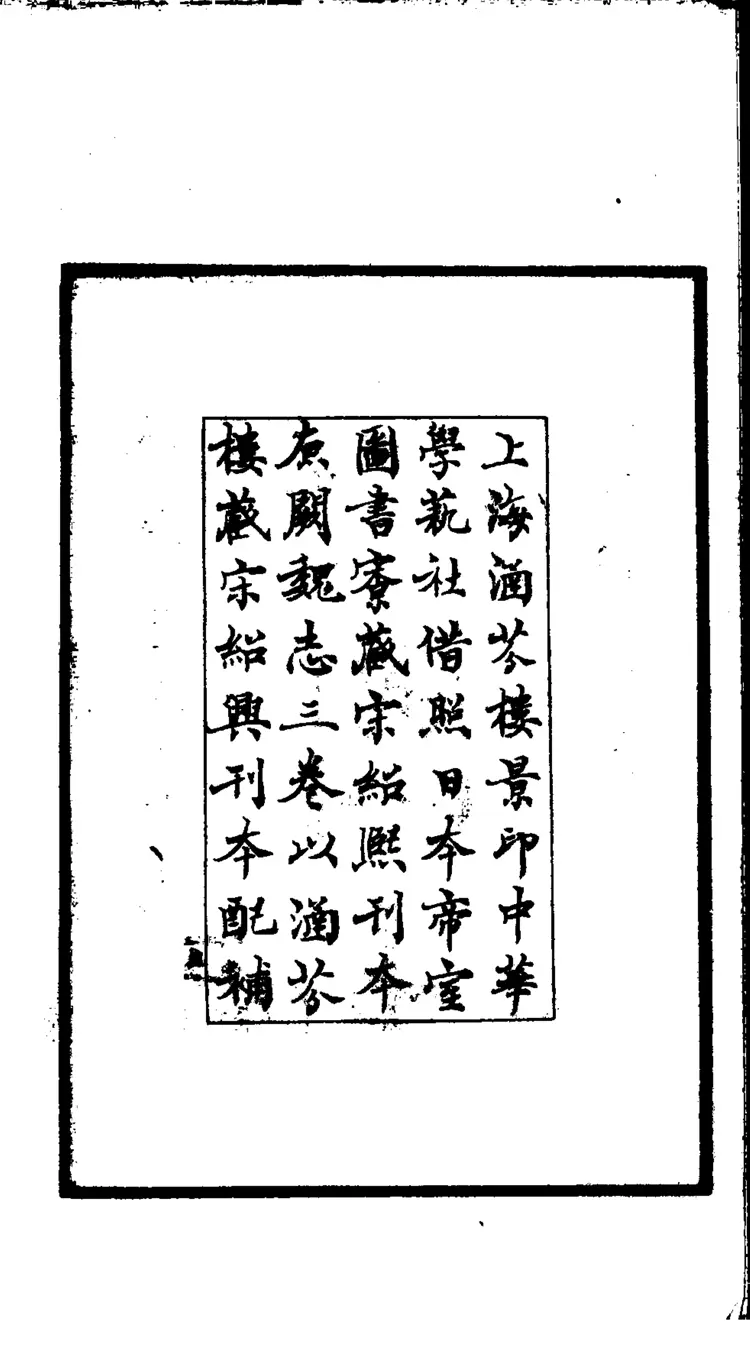 上海涵芬樓景印中華
學藝社借照日本帝室
圖書寮藏宋紹熙刊本
原闕魏志三卷以涵芬
樓藏宋紹興刊本配補